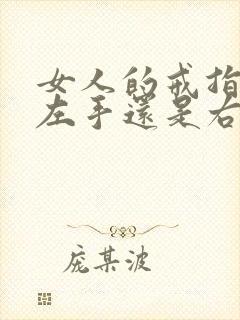 女人的戒指
左手還是右
庞某波